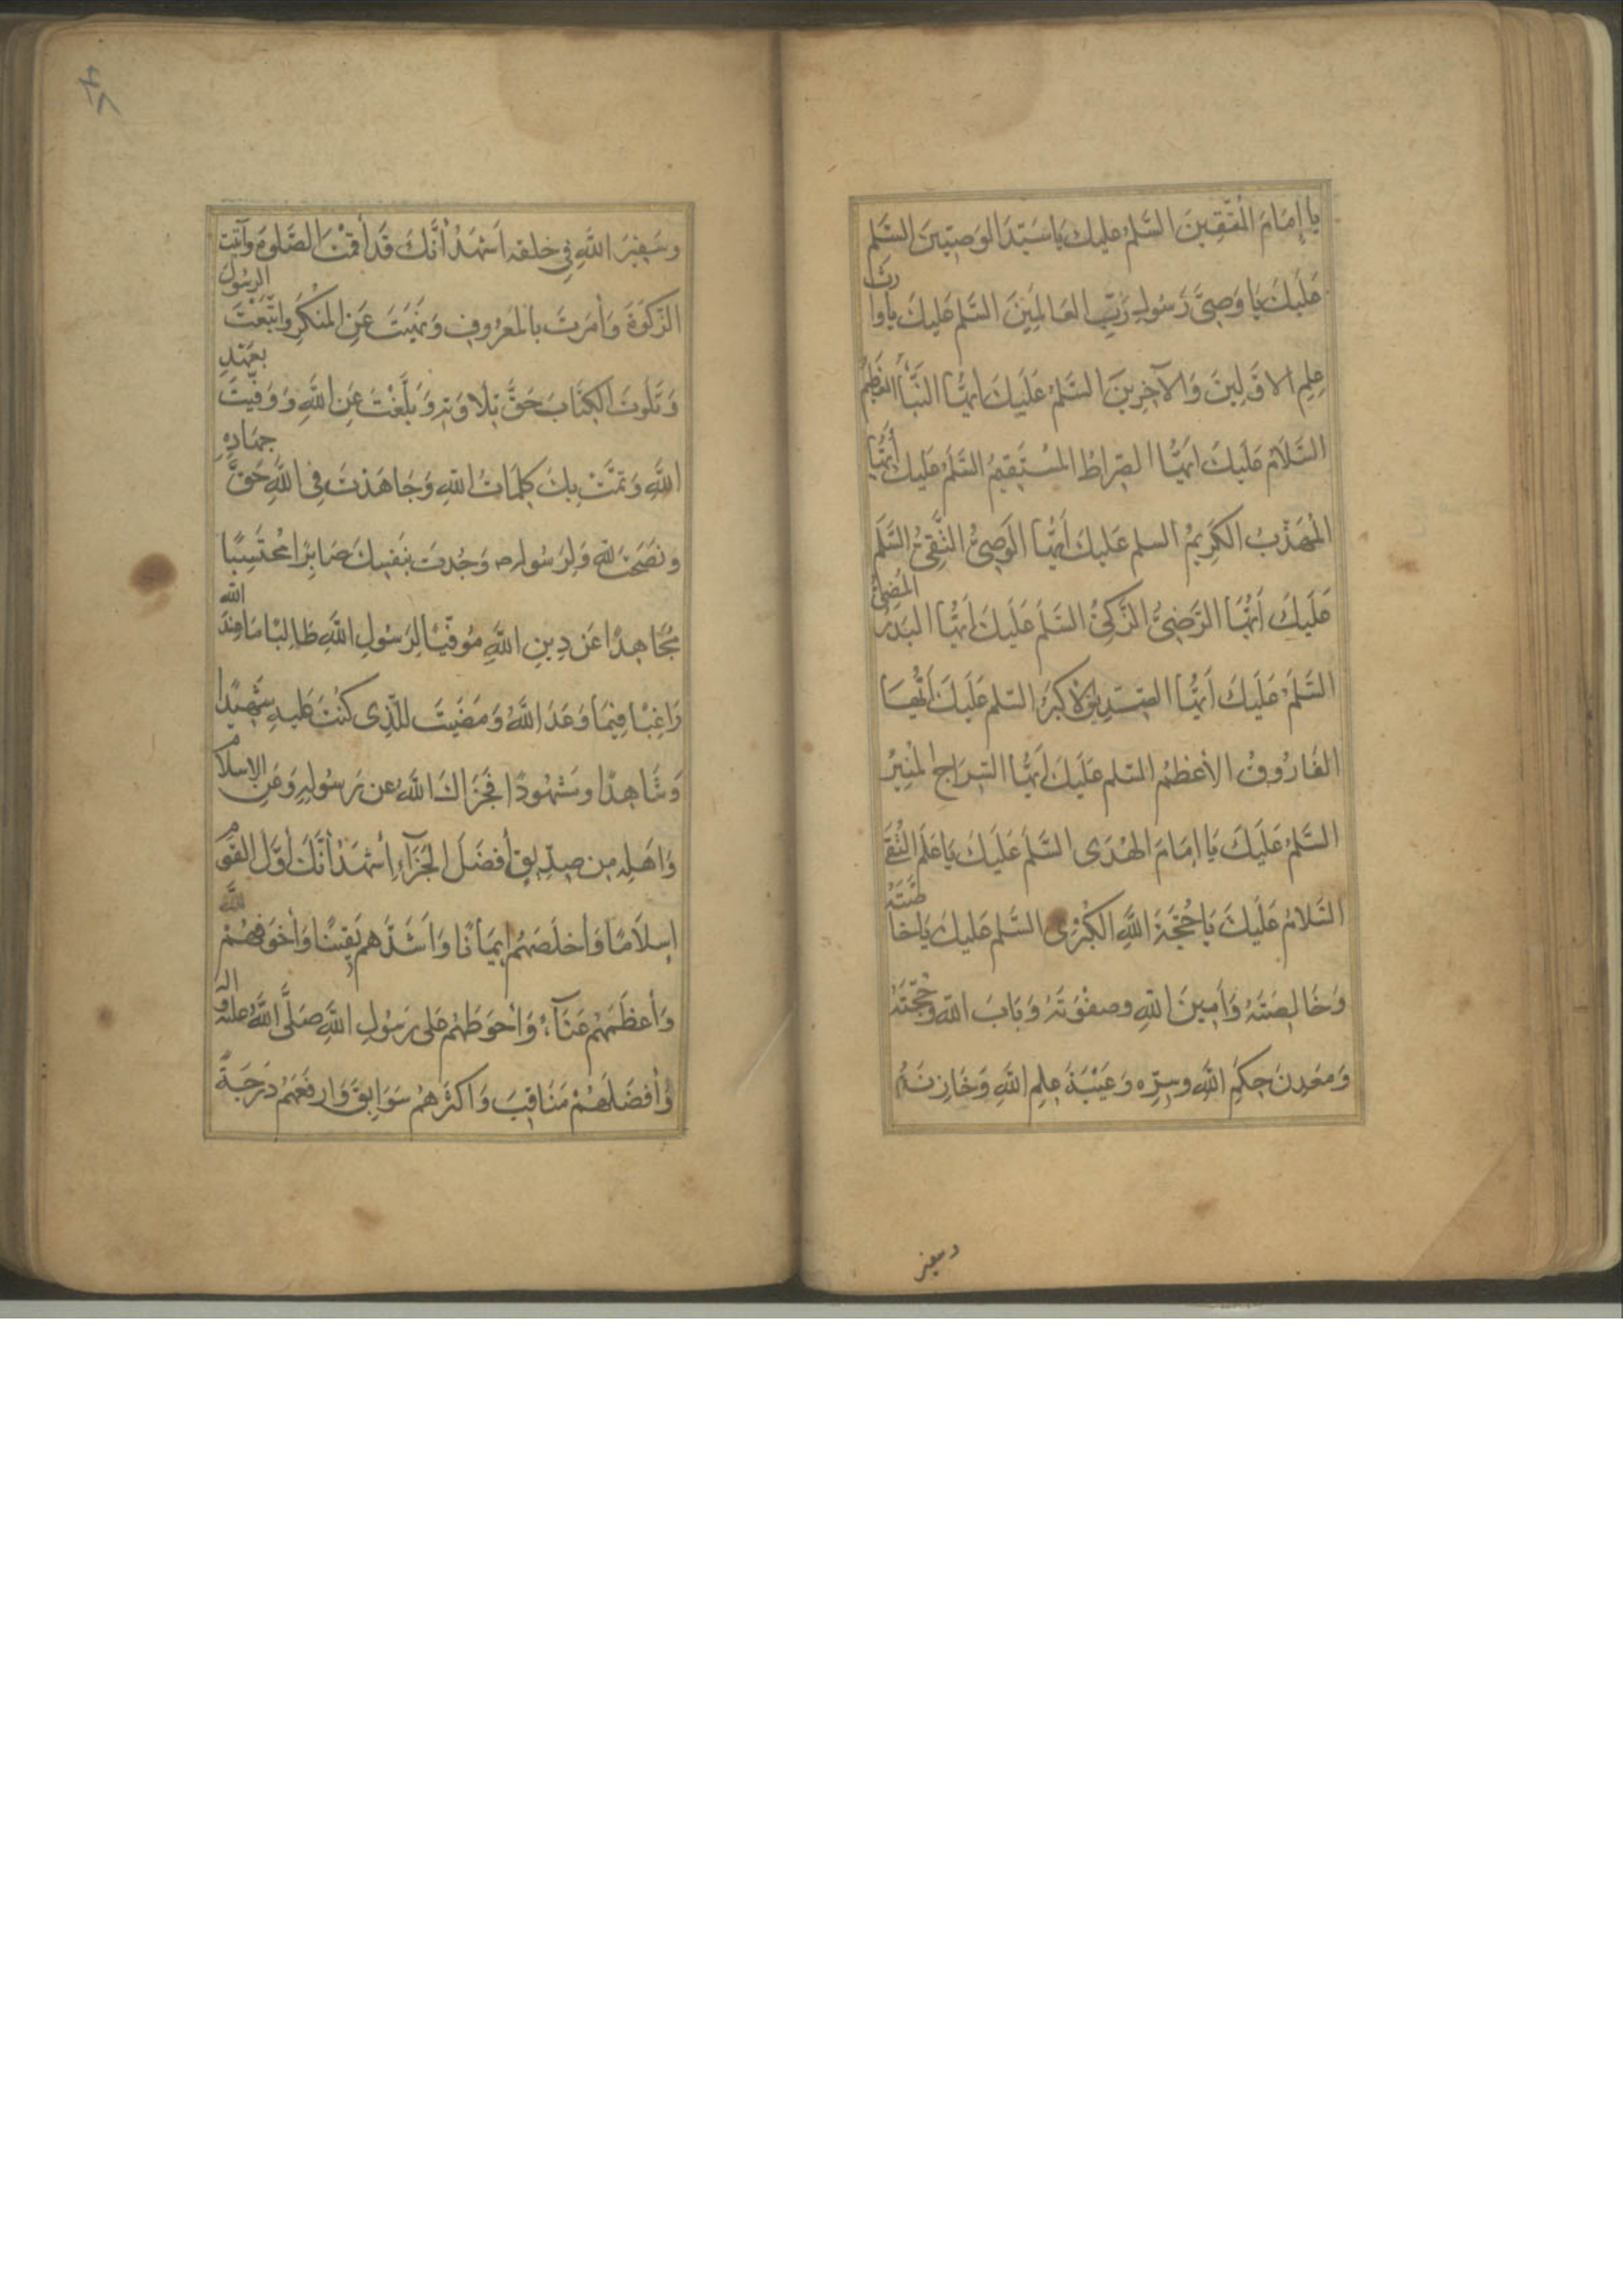 يا إِمَامَ الْمُتَّقِينَ السَّلمُ عليك يَا سَيِّدَ الوَصِيّينَ السَّلم
عَلَيكَ يَا وَصِىَّ رَسُولِ رَبِّ العَالَمِينَ السَّلم عَلَيكَ يا وارِثَ
عِلمِ الاوَّلِينَ وَالآخِرِينَ السَّلمُ عَلَيكَ ايُّهَا النَّبَأُ العَظِيمُ
السَّلَامُ عَلَيكَ ايُّهَا الصِّراطُ المُسْتَقِيمُ السَّلَمُ عَلَيكَ أيُّهَا
الْمُهَذَّبُ الكَرِيمُ السلم عَلَيكَ أَيُّهَا الوَصِىُّ التَّقِىُّ السَّلَم
عَلَيكَ أَيُّهَا الرَّضِىُّ الزَّكِىُّ السَّلَم عَلَيكَ أَيُّهَا البَدرُ المُضِئُ
السَّلَمُ عَلَيكَ أَيُّهَا الصِّدِيقُ الأكبَرُ السّلم عَلَيكَ أَيُّهَا
الفَارُوقُ الأعظمُ السّلم عَلَيكَ ايُّهَا السِّرَاجُ المُنِيرُ
السَّلمُ عَلَيكَ يَا إِمَامَ الهُدَى السَّلَم عَلَيكَ يَا عَلَمَ التُّقَى
السَّلَامُ عَلَيكَ يَا حُجَّةَ اللَّهِ الكُبْرَى السَّلم عَلَيكَ يَا خاصَّتَهُ
وَخَالِصَتَهُ وَأَمِينَ اللهِ وصفْوَتَهُ وَبَابَ اللهِ وَحُجَّتَهُ
وَمَعْدِنَ حِكَمِ اللهِ وسِرِّه وَعَيْبَةَ عِلمِ اللَّهِ وَخَازِنَهُ
وسفير
وسَفِيرَ اللَّهِ فِي خلقه اَشهَدُ أنَّكَ قَد أقَمْتَ الصَّلوةَ وآتَيْتَ
الزَّكَوةَ وَأمَرتَ بِالمَعرُوفِ وَنَهَيتَ عَنِ المُنكَرِ واتَّبَعْتَ الرسُولَ
وَتَلَوتَ الكِتَابَ حَقَّ تِلاوَتِهِ وَبَلَّغْتَ عَنِ اللَّهِ وَوَفَيْتَ بِعَهْدِ
اللَّهِ وَتَمَّتْ بِكَ كَلِمَاتُ اللَّهِ وَجَاهَدتَ فِى اللَّهِ حَقَّ جِهَادِهِ
ونَصَحتَ للهِ وَلِرَسُولِهِ وَجُدتَ بِنَفسِكَ صَابِرًا مُحتَسِبًا
مُجَاهِدًا عَن دِينِ اللَّهِ مُوقِّيًا لِرَسُولِ اللَّهِ طَالِبًا مَا عِندَ الله
رَاغِبًا فِيمَا وَعَدَ اللَّهُ وَمَضَيتَ لِلَّذِى كُنتَ عَلَيهِ شَهِيدًا
وَشَاهِدًا ومَشهُودًا فَجَزَاكَ اللَّهُ عن رَسُولِهِ وَعَنِ الإسلامِ
وَاَهلِهِ مِن صِدِّيقٍ أفضَلَ الجَزَآءِ أشهَدُ أنَّكَ أوَّل القَومِ
إسلَامًا وَأخلَصَهُم إيمَانًا وَاَشَدَّهم يَقِينًا وَأخوَفَهُمْ للَّهِ
وَأعظَمَهُم عَنَآءً وَأحوَطَهُم عَلى رَسُولِ اللَّهِ صَلَّى اللَّهُ علَيه واله
وَأفضَلَهُمْ مَنَاقِبَ وَاَكثَرَهُم سَوَابِقَ وَارفَعَهُم دَرَجَةً